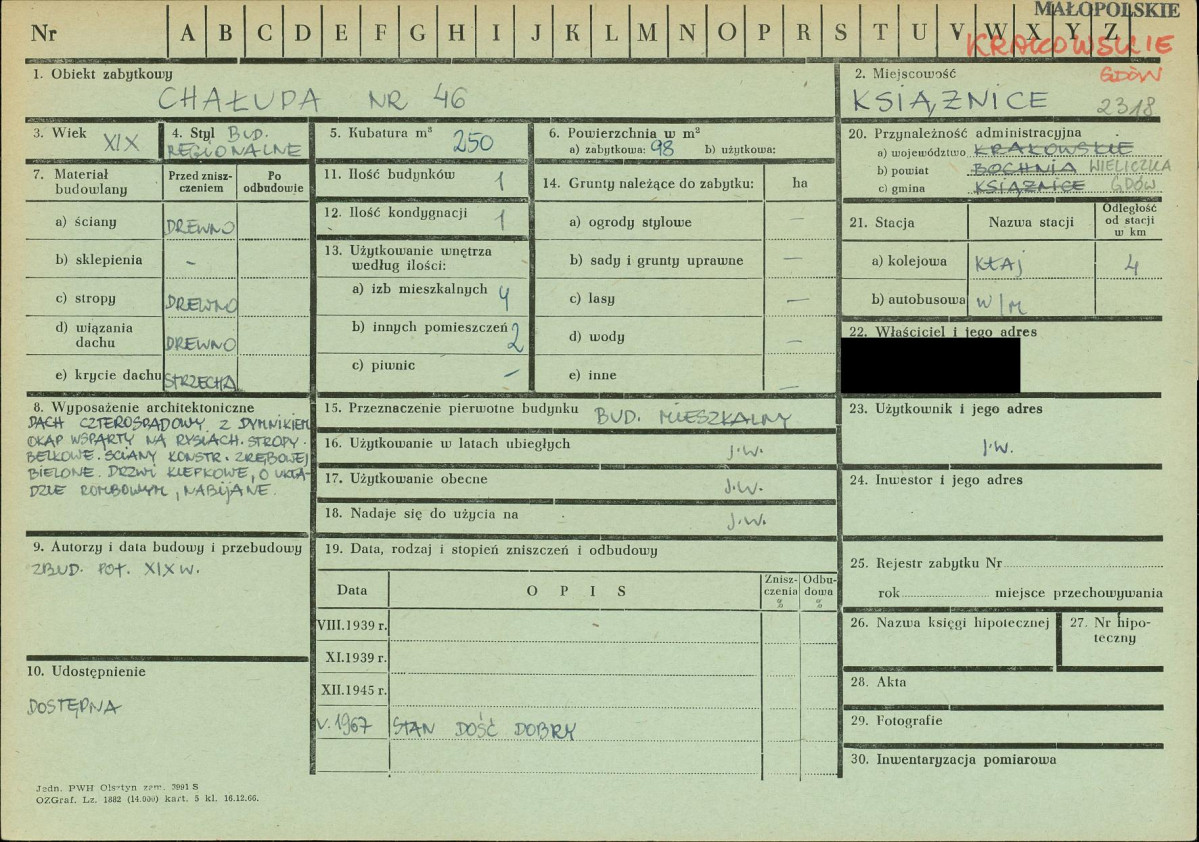 MAŁOPOLSKIE
Nr A B C D E F G H I J K L M N O P R S T U V W X Y Z
KRAKOWSKIE
GDÓW
1. Obiekt zabytkowy
CHAŁUPA NR 46
2. Miejscowość
KSIĄŻNICE 2318
3. Wiek XIX
4. Styl BUD. REGIONALNE
5. Kubatura m³ 250
6. Powierzchnia w m²
a) zabytkowa: 98 b) użytkowa:
20. Przynależność administracyjna
a) województwo KRAKOWSKIE
b) powiat BOCHNIA WIELICZKA
c) gmina KSIĄŻNICE GDÓW
7. Materiał budowlany
Przed zniszczeniem
Po odbudowie
a) ściany DREWNO
b) sklepienia –
c) stropy DREWNO
d) wiązania dachu DREWNO
e) krycie dachu STRZECHA
11. Ilość budynków 1
12. Ilość kondygnacji 1
13. Użytkowanie wnętrza według ilości:
a) izb mieszkalnych 4
b) innych pomieszczeń 2
c) piwnic –
14. Grunty należące do zabytku: ha
a) ogrody stylowe –
b) sady i grunty uprawne –
c) lasy –
d) wody –
e) inne –
21. Stacja
Nazwa stacji
Odległość od stacji w km
a) kolejowa KŁAJ 4
b) autobusowa W/M
22. Właściciel i jego adres
8. Wyposażenie architektoniczne
DACH CZTEROSPADOWY Z DYMNIKIEM
OKAP WSPARTY NA RYSIACH. STROPY.
BELKOWE. ŚCIANY KONSTR. ZRĘBOWEJ
BIELONE. DRZWI KLEPKOWE, O UKŁA-
DZIE ROMBOWYM, NABIJANE.
15. Przeznaczenie pierwotne budynku BUD. MIESZKALNY
16. Użytkowanie w latach ubiegłych J.W.
17. Użytkowanie obecne J.W.
18. Nadaje się do użycia na J.W.
23. Użytkownik i jego adres
J.W.
24. Inwestor i jego adres
9. Autorzy i data budowy i przebudowy
ZBUD. POŁ. XIX W.
19. Data, rodzaj i stopień zniszczeń i odbudowy
Data
OPIS
Zniszczenia %
Odbudowa %
VIII.1939 r.
XI.1939 r.
XII.1945 r.
V. 1967 STAN DOŚĆ DOBRY
25. Rejestr zabytku Nr
rok miejsce przechowywania
26. Nazwa księgi hipotecznej
27. Nr hipoteczny
28. Akta
29. Fotografie
30. Inwentaryzacja pomiarowa
10. Udostępnienie
DOSTĘPNA
Jedn. PWH Olsztyn zam. 2991 S
OZGraf. Lz. 1882 (14.000) kart. 5 kl. 16.12.66.